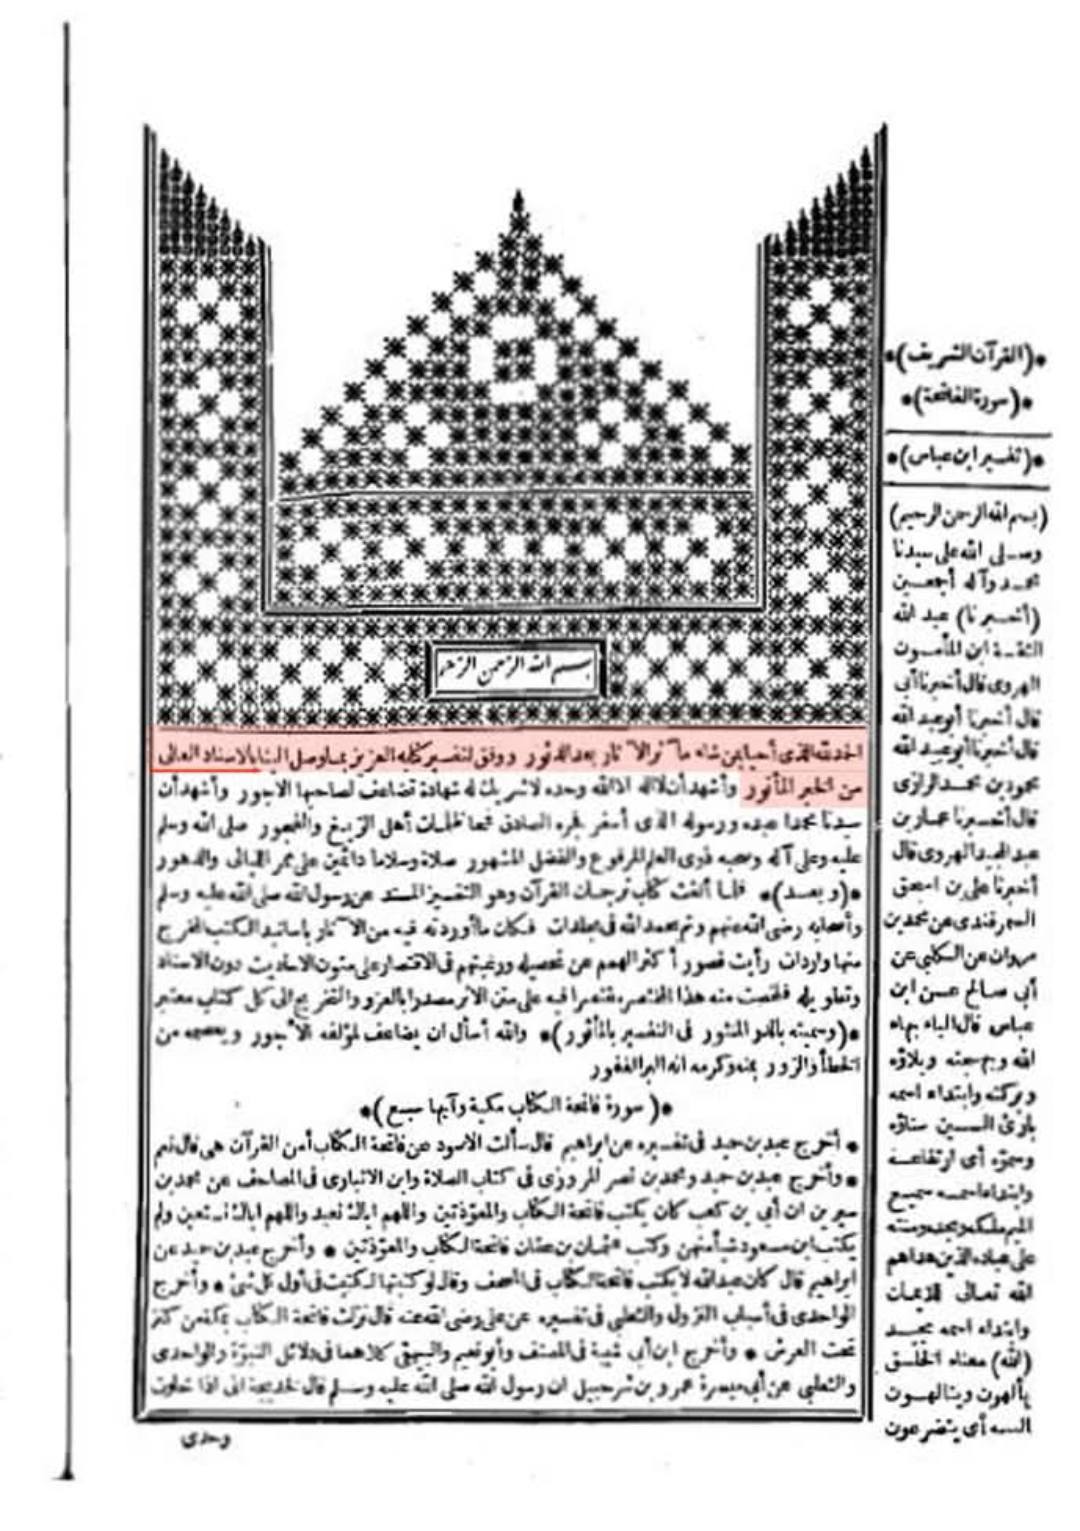 بسم الله الرحمن الرحيم
الحمد لله الذى أحيا بمن شاء مآثر الآثار بعد الدثور ووفق لتفسير كتابه العزيز بما وصل الينا بالاسناد العالى
من الخبر المأثور وأشهد أن لا اله الا الله وحده لا شريك له شهادة تضاعف لصاحبها الاجور وأشهد أن
سيدنا محمدا عبده ورسوله الذى أسفر فجره الصادق فمحا ظلمات أهل الزيغ والفجور صلى الله وسلم
عليه وعلى آله وصحبه ذوى العلم المرفوع والفضل المشهور صلاة وسلاما دائمين على ممر الليالى والدهور
*(وبعد)* فلما ألفت كتاب ترجمان القرآن وهو التفسير المسند عن رسول الله صلى الله عليه وسلم
وأصحابه رضى الله عنهم وتم بحمد الله فى مجلدات فكان ما أوردته فيه من الآثار باسانيد الكتب المخرج
منها واردات رأيت قصور أكثر الهمم عن تحصيله ورغبتهم فى الاقتصار على متون الاحاديث دون الاسناد
وتطويله فلخصت منه هذا المختصر مقتصرا فيه على متن الاثر مصدرا بالعزو والتخريج الى كل كتاب معتبر
*(وسميته بالدر المنثور فى التفسير بالمأثور)* والله أسأل ان يضاعف لمؤلفه الأجور ويعصمه من
الخطأ والزور بمنه وكرمه انه البر الغفور
*(سورة فاتحة الكتاب مكية وآيها سبع)*
* أخرج عبد بن حميد فى تفسيره عن ابراهيم قال سألت الاسود عن فاتحة الكتاب أمن القرآن هى قال نعم
* وأخرج عبد بن حميد ومحمد بن نصر المروزى فى كتاب الصلاة وابن الانبارى فى المصاحف عن محمد بن
سيرين ان أبى بن كعب كان يكتب فاتحة الكتاب والمعوذتين واللهم اياك نعبد واللهم اياك نستعين ولم
يكتب ابن مسعود شيأ منهن وكتب عثمان بن عفان فاتحة الكتاب والمعوذتين * وأخرج عبد بن حميد عن
ابراهيم قال كان عبد الله لا يكتب فاتحة الكتاب فى المصحف وقال لو كتبتها لكتبت فى أول كل شئ * وأخرج
الواحدى فى أسباب النزول والثعلبى فى تفسيره عن على رضى الله عنه قال نزلت فاتحة الكتاب بمكة من كنز
تحت العرش * وأخرج ابن أبى شيبة فى المصنف وأبو نعيم والبيهقى كلاهما فى دلائل النبوة والواحدى
والثعلبى عن أبى ميسرة عمرو بن شرحبيل ان رسول الله صلى الله عليه وسلم قال لخديجة انى اذا خلوت
وحدى
*(القرآن الشريف)*
*(سورة الفاتحة)*
*(تفسير ابن عباس)*
(بسم الله الرحمن الرحيم)
وصلى الله على سيدنا
محمد وآله أجمعين
(أخبرنا) عبد الله
الثقة ابن المأمون
الهروى قال أخبرنا أبى
قال أخبرنا أبو عبد الله
قال أخبرنا أبو عبيد الله
محمود بن محمد الرازى
قال أخبرنا عمار بن
عبد المجيد الهروى قال
أخبرنا على بن اسحق
السمرقندى عن محمد بن
مروان عن الكلبى عن
أبى صالح عن ابن
عباس قال الباء بهاء
الله وبهجته وبلاؤه
وبركته وابتداء اسمه
بارئ السين سناؤه
وسموه أى ارتفاعه
وابتداء اسمه سميع
الميم ملكه ومجده ومنته
على عباده الذين هداهم
الله تعالى للايمان
وابتداء اسمه مجيد
(الله) معناه الخلق
يألهون ويتألهون
اليه أى يتضرعون